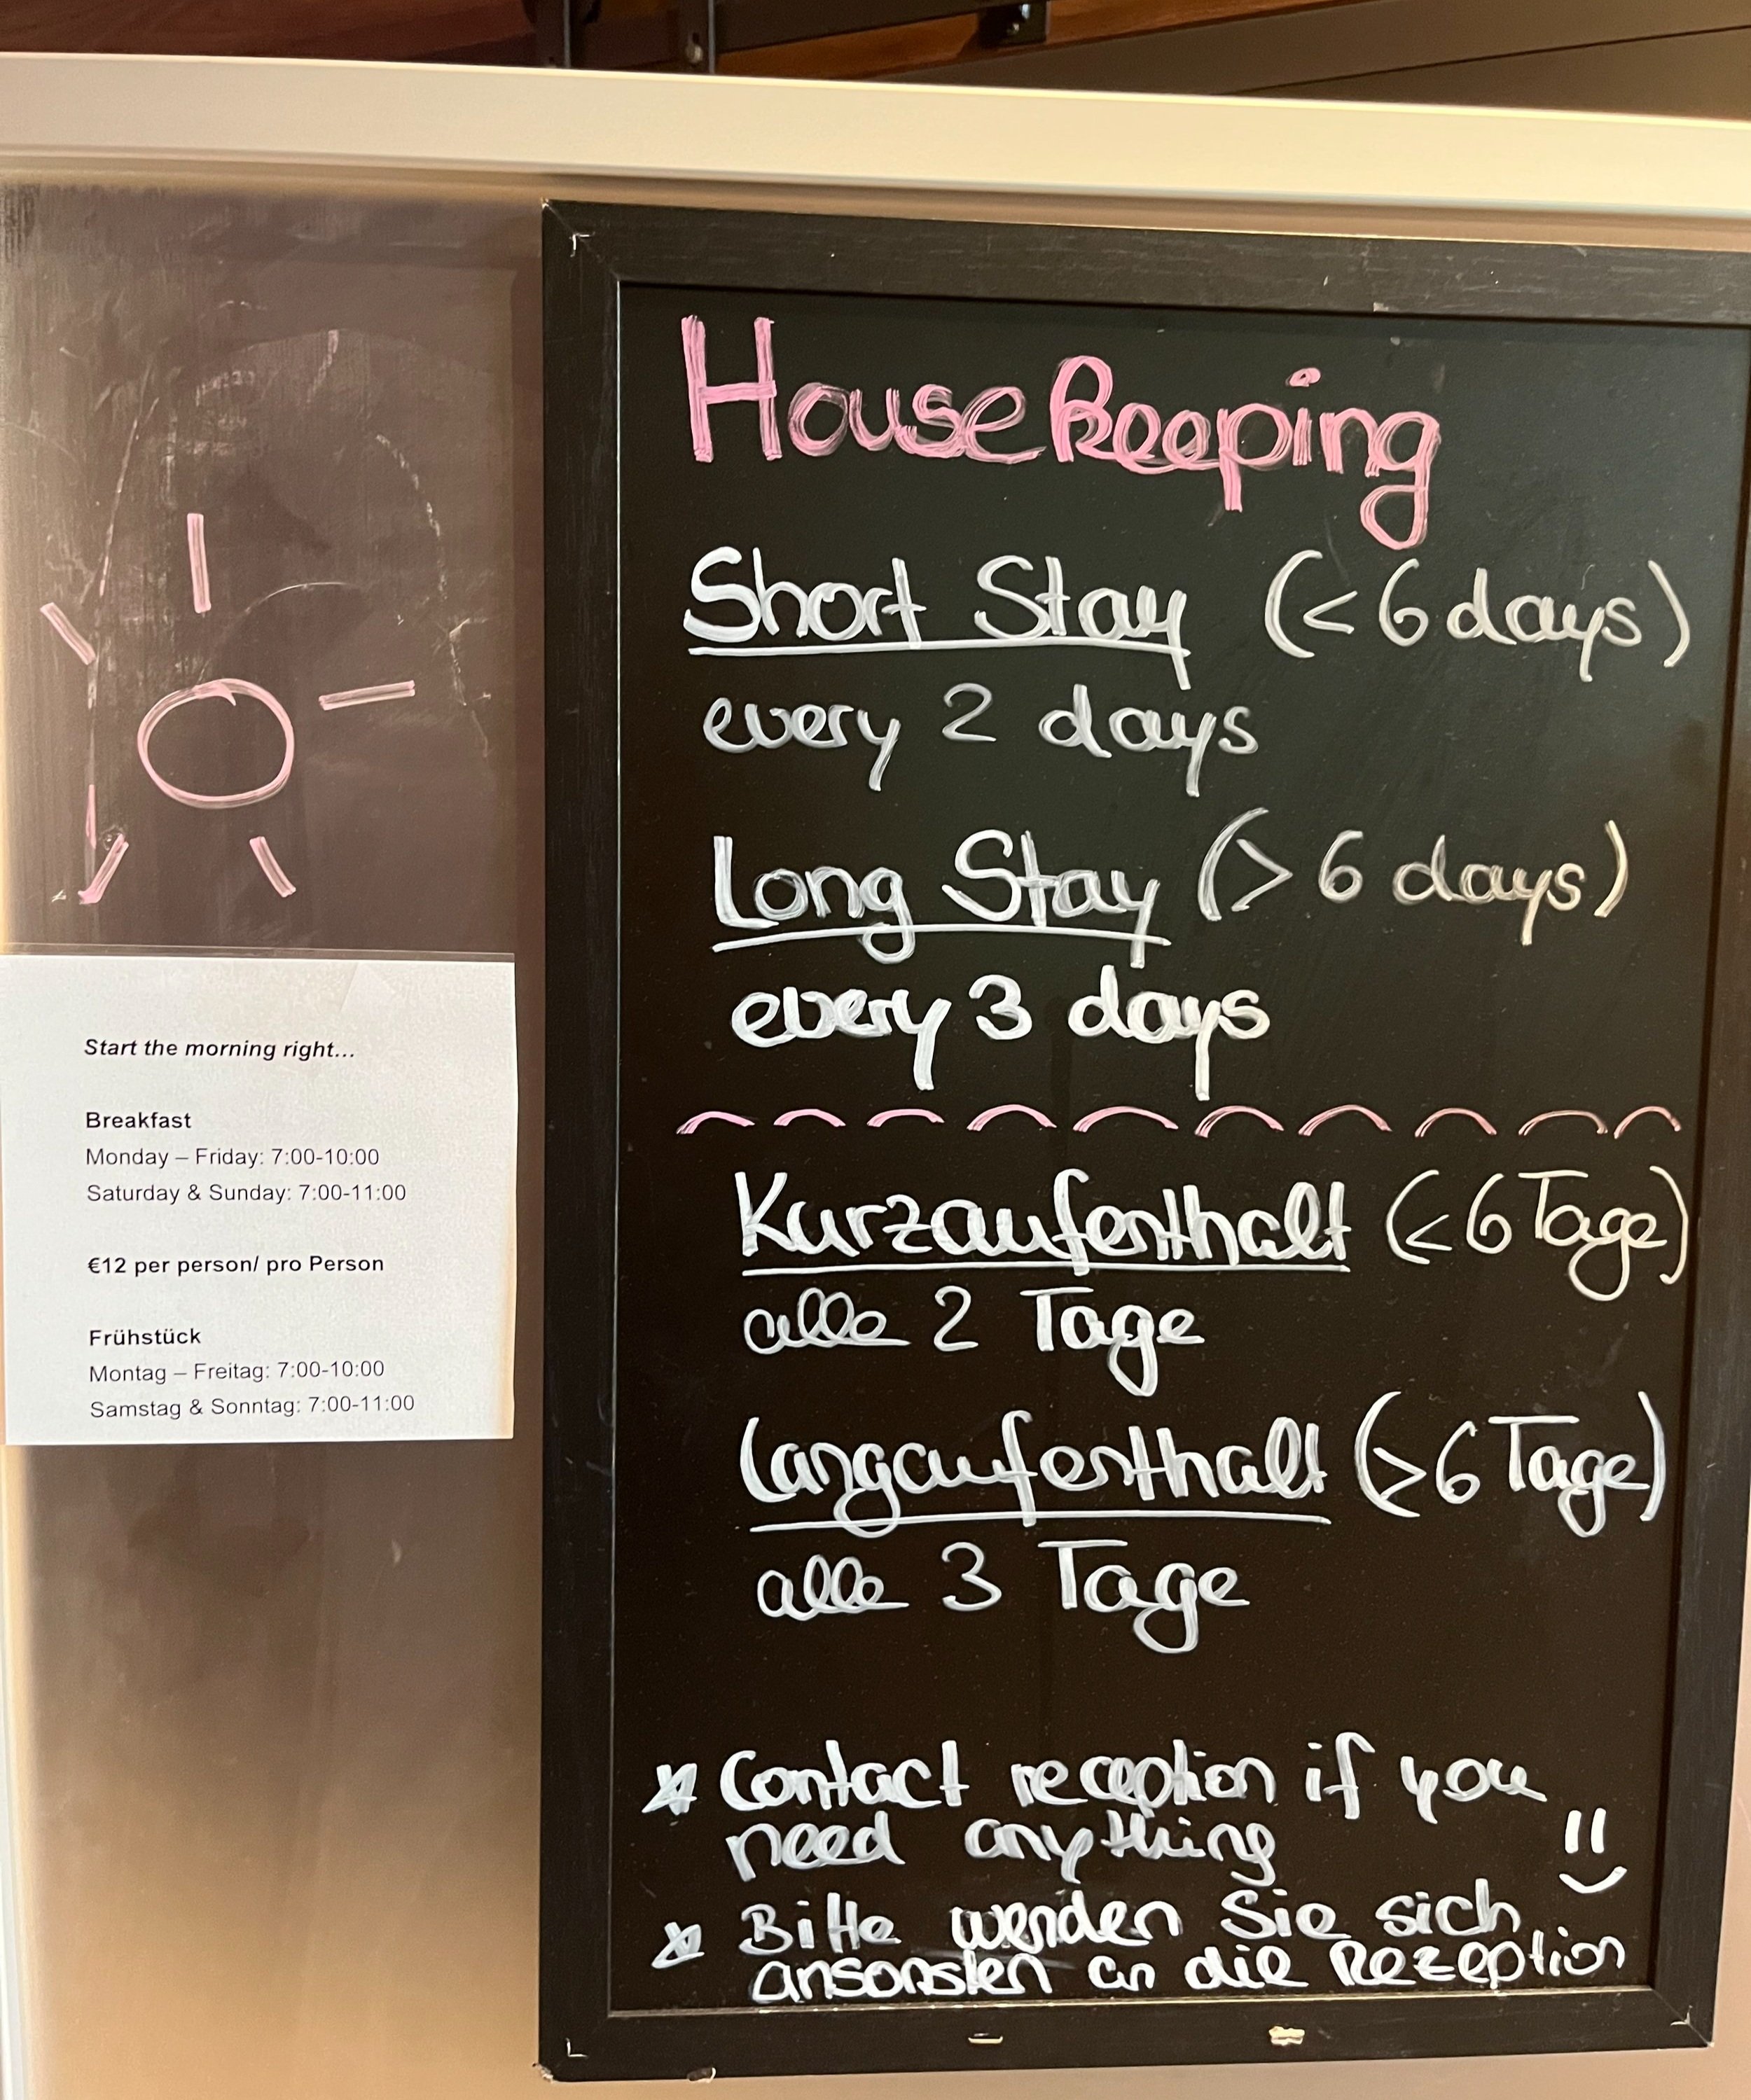 Start the morning right...
Breakfast
Monday – Friday: 7:00-10:00
Saturday & Sunday: 7:00-11:00
€12 per person/ pro Person
Frühstück
Montag – Freitag: 7:00-10:00
Samstag & Sonntag: 7:00-11:00
Housekeeping
Short Stay (< 6 days)
every 2 days
Long Stay (> 6 days)
every 3 days
Kurzaufenthalt (< 6 Tage)
alle 2 Tage
Langaufenthalt (> 6 Tage)
alle 3 Tage
* Contact reception if you
need anything
* Bitte wenden Sie sich
ansonsten an die Rezeption